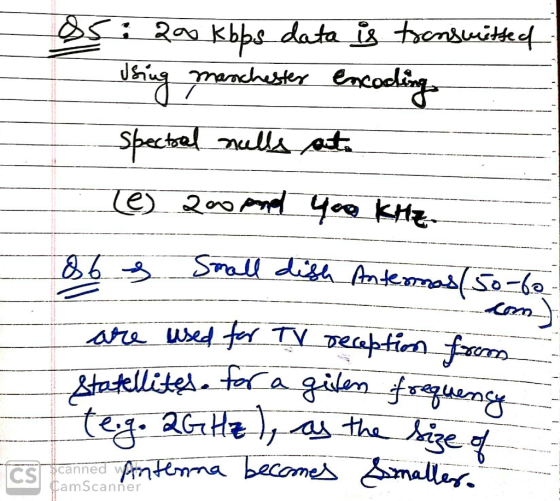 Q5 : 200 Kbps data is transmitted
Using manchester encoding.
Spectral nulls at.
(e) 200 and 400 KHz.
Q6 → Small dish Antennas (50-60
cm)
are used for TV reception from
Statellites. for a given frequency
(e.g. 2GHz), as the size of
Antenna becomes Smaller.
CS Scanned with
CamScanner